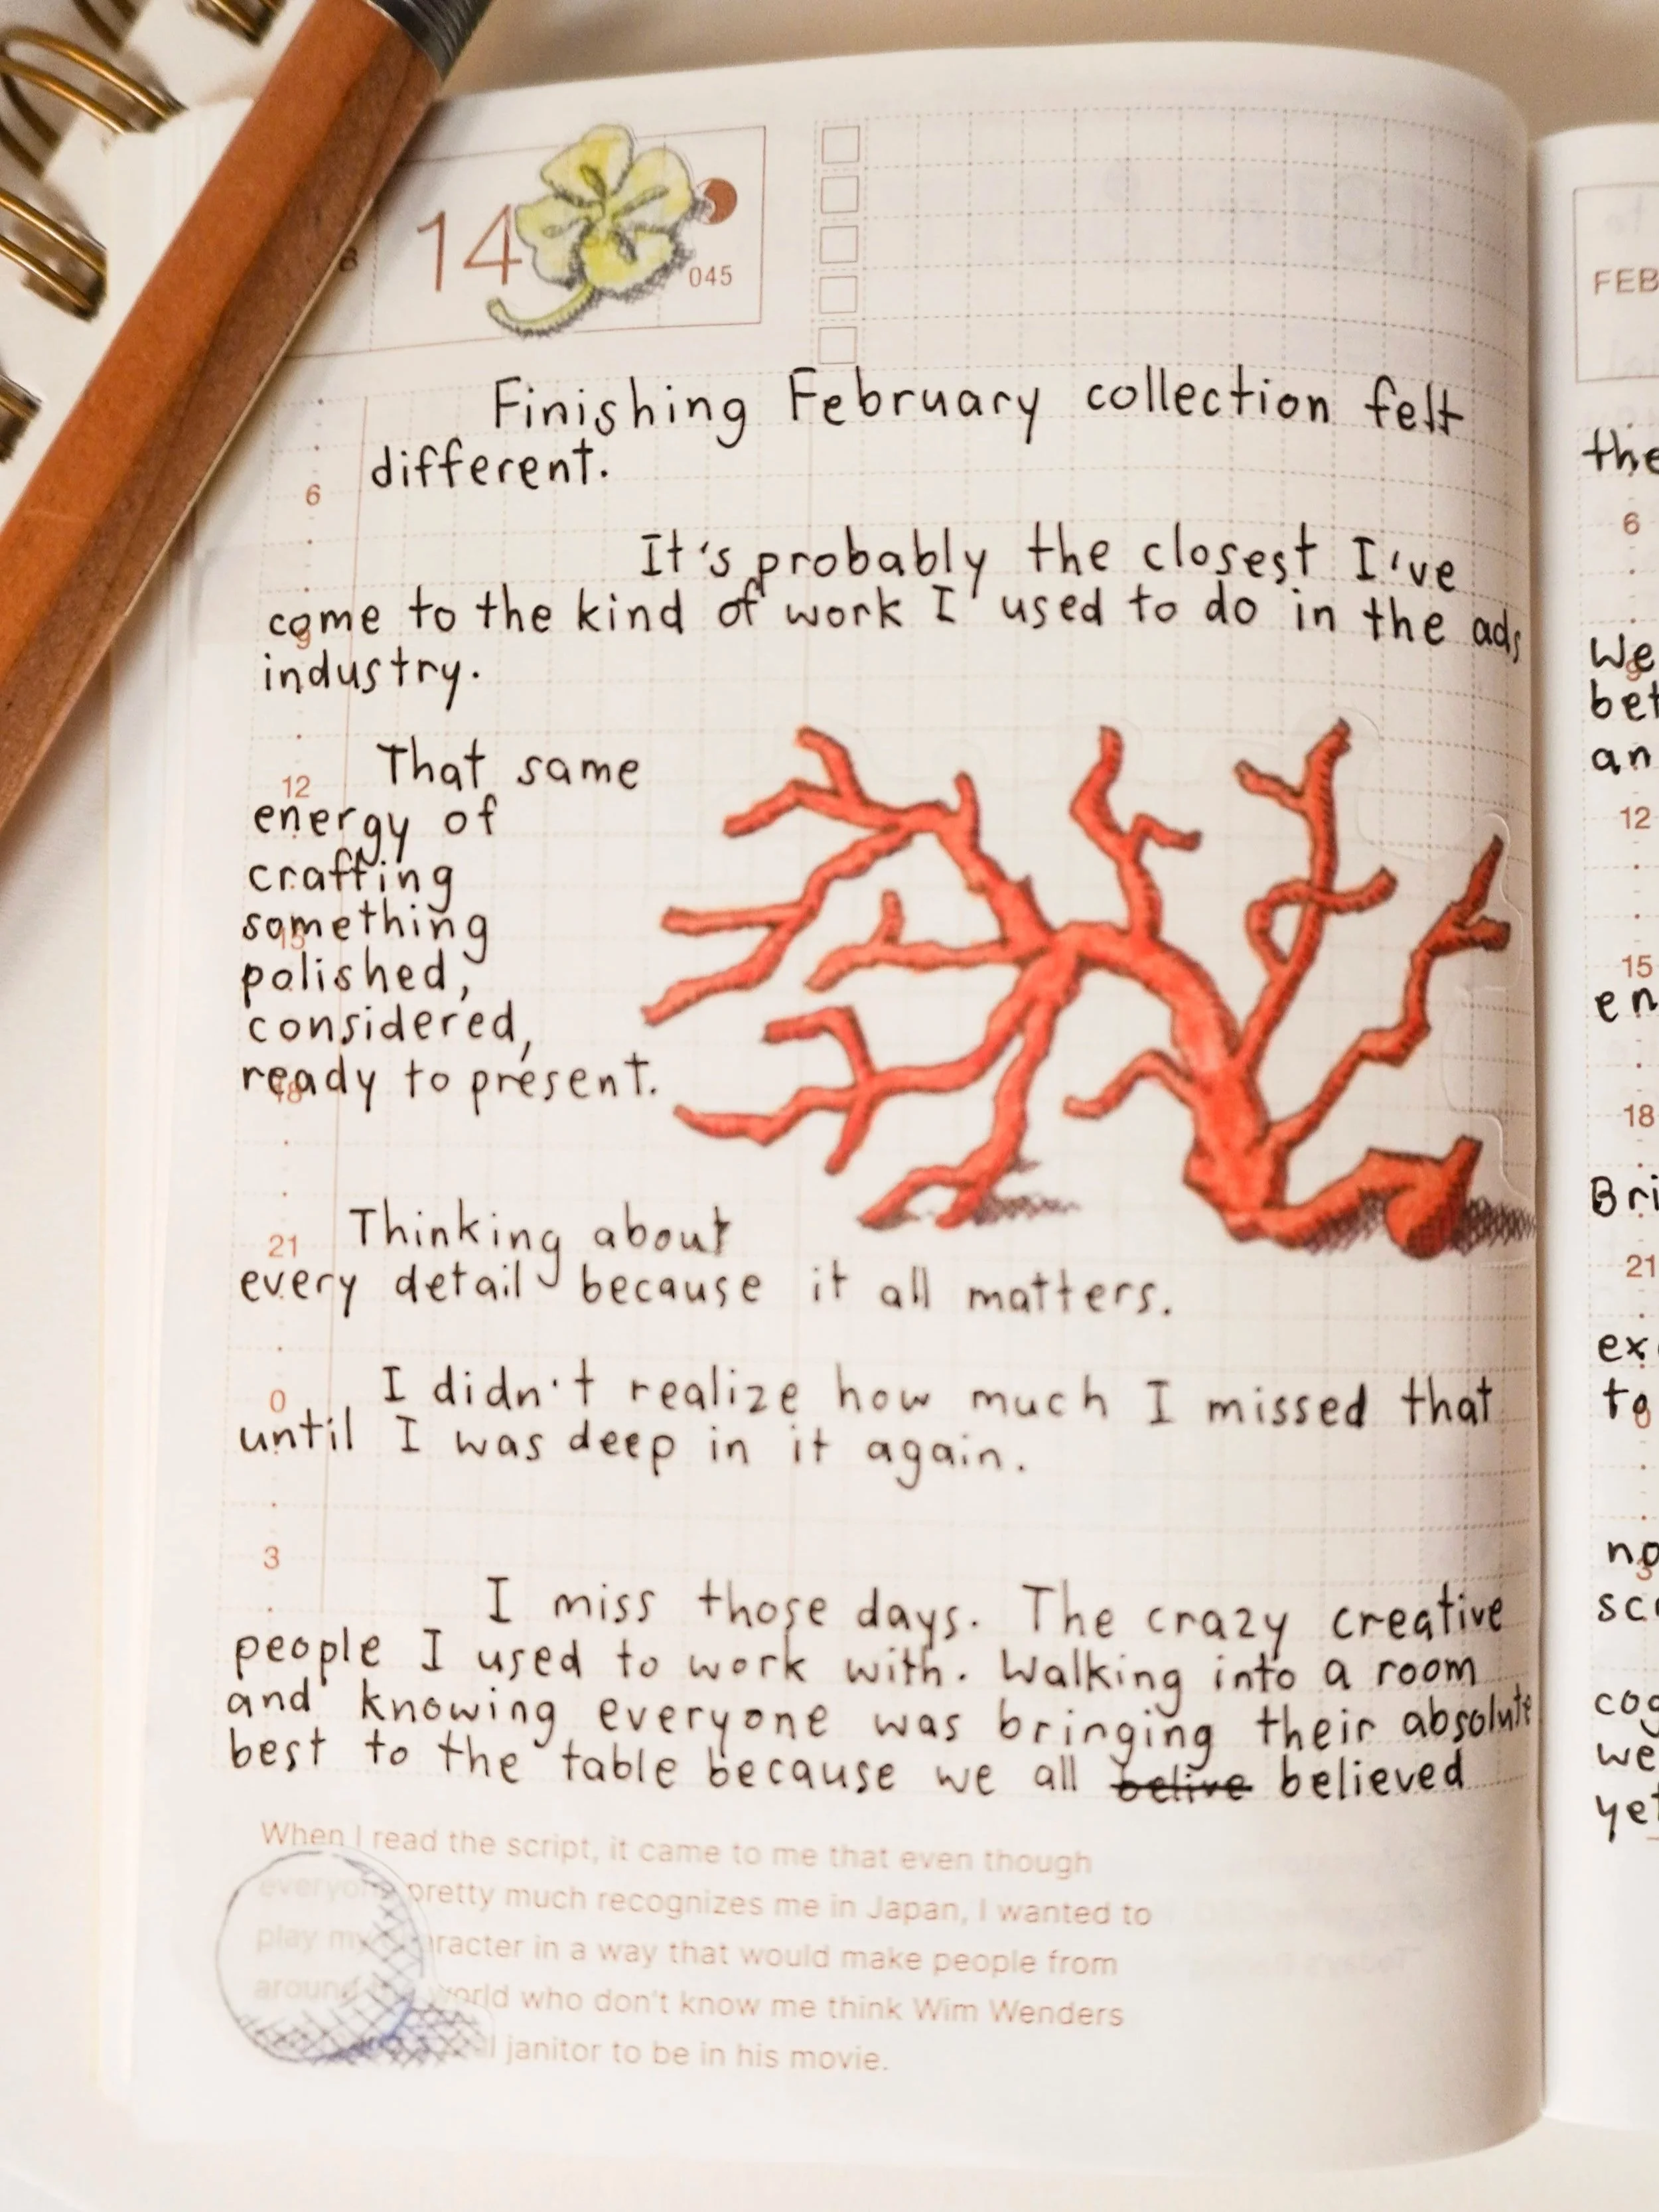 14
045
Finishing February collection felt
different.
6
It's probably the closest I've
come to the kind of work I used to do in the ads
9
industry.
That same
12
energy of
crafting
something
15
polished,
considered,
ready to present.
18
Thinking about
21
every detail because it all matters.
I didn't realize how much I missed that
0
until I was deep in it again.
3
I miss those days. The crazy creative
people I used to work with. Walking into a room
and knowing everyone was bringing their absolute
best to the table because we all belive believed
When I read the script, it came to me that even though
everyone pretty much recognizes me in Japan, I wanted to
play my character in a way that would make people from
around the world who don't know me think Wim Wenders
janitor to be in his movie.
FEB
the
6
We
9
an
12
15
en
18
21
to
0
3
we